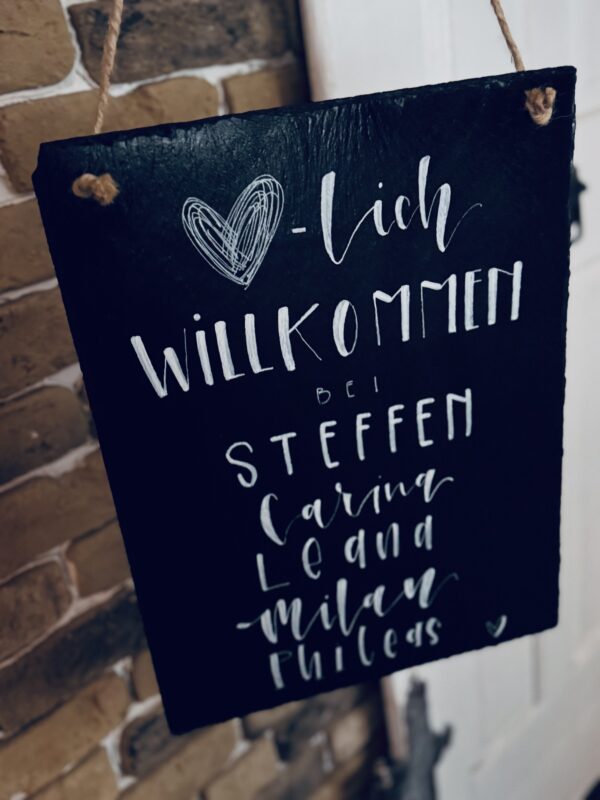 ♡-lich
WILLKOMMEN
BEI
STEFFEN
Carina
Leana
Milan
Phileas